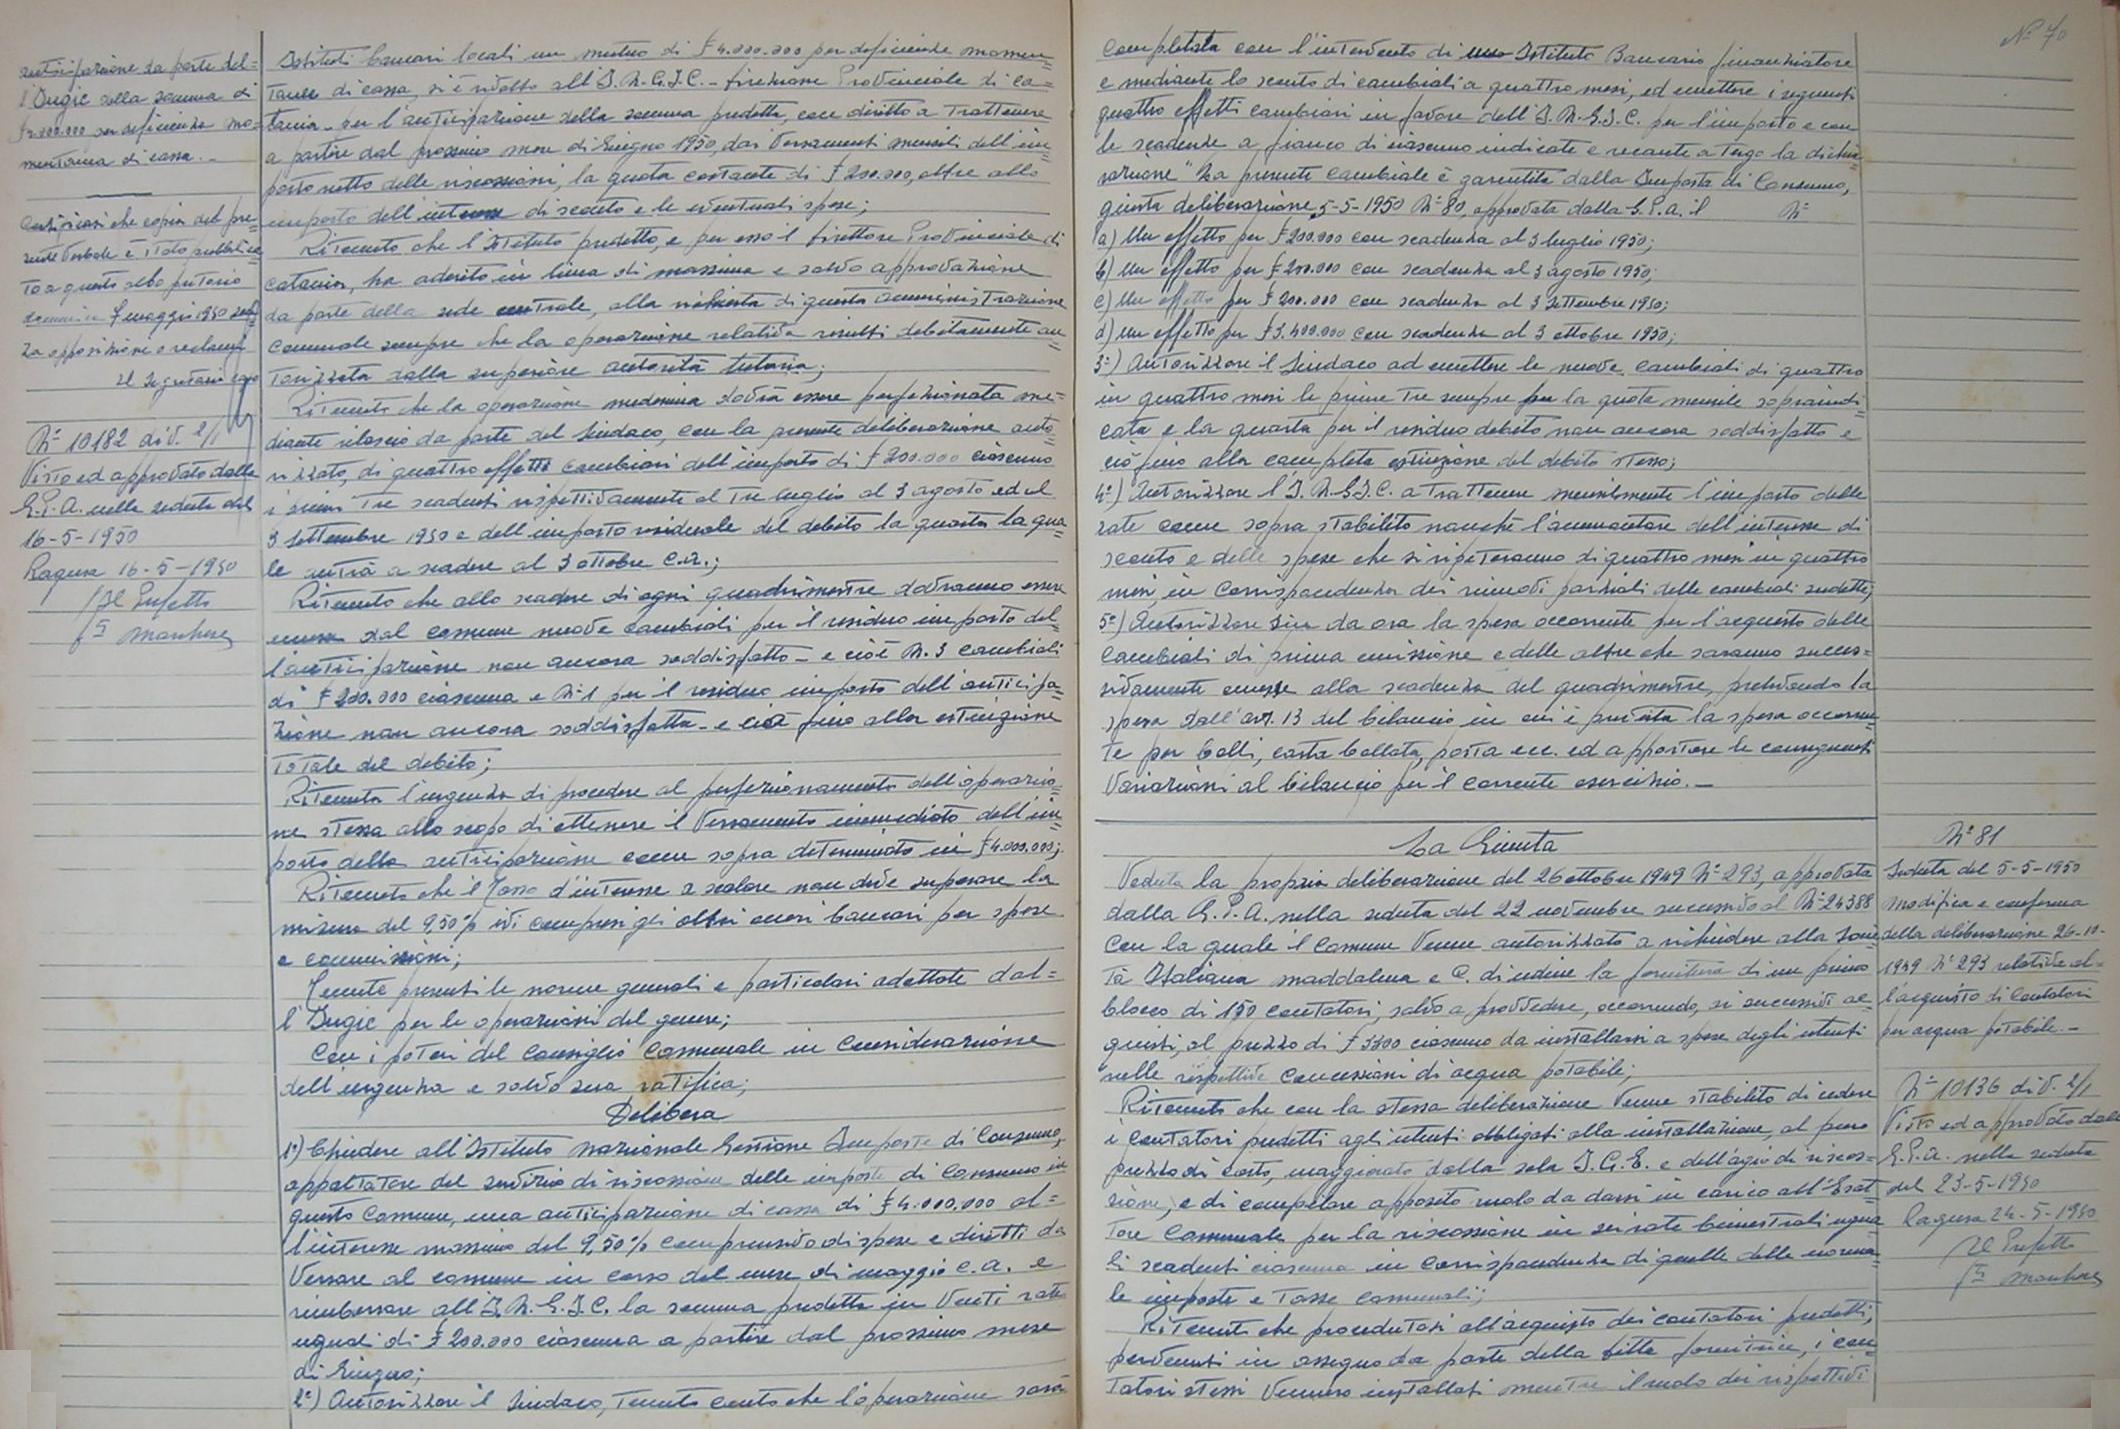 anticipazione da parte del=
l'Ingic della somma di
£ 4.000.000 per deficienza mo=
mentanea di cassa. -
Certificasi che copia del pre=
sente Verbale è stato pubblica=
to a questo albo pretorio
domenica 7 maggio 1950 sen=
za opposizione o reclami
Il Segretario capo
N° 10182 div. 2/1
Visto ed approvato dalla
G.P.A. nella seduta del
16-5-1950
Ragusa 16-5-1950
Il Prefetto
Istituti bancari locali un mutuo di £ 4.000.000 per deficienze momen=
tanee di cassa, si è rivolto all'I.N.G.I.C. - Direzione Provinciale di Ca=
tania - per l'anticipazione della somma predetta, con diritto a trattenere
a partire dal prossimo mese di Giugno 1950, dai versamenti mensili dell'im=
porto netto delle riscossioni, la quota costante di £ 200.000, oltre allo
importo dell'interesse di sconto e le eventuali spese;
Ritenuto che l'Istituto predetto, e per esso il Direttore Provinciale di
Catania, ha aderito in linea di massima e salvo approvazione
da parte della sede centrale, alla richiesta di questa amministrazione
comunale sempre che la operazione relativa risulti debitamente au=
torizzata dalla superiore autorità tutoria;
Ritenuto che la operazione medesima dovrà essere perfezionata me=
diante rilascio da parte del Sindaco, con la presente deliberazione auto=
rizzato, di quattro effetti cambiari dell'importo di £ 200.000 ciascuno
i primi tre scadenti rispettivamente al tre luglio al 3 agosto ed al
3 Settembre 1950 e dell'importo residuale del debito la quarta la qua
le andrà a scadere al 3 ottobre c.a.;
Ritenuto che allo scadere di ogni quadrimestre dovranno essere
emesse dal comune nuove cambiali per il residuo importo del=
l'anticipazione non ancora soddisfatto - e cioè N. 3 cambiali
di £ 200.000 ciascuna e N° 1 per il residuo importo dell'anticipa=
zione non ancora soddisfatta - e ciò fino alla estinzione
totale del debito;
Ritenuta l'urgenza di procedere al perfezionamento dell'operazio=
ne stessa allo scopo di ottenere il versamento immediato dell'im=
porto della anticipazione come sopra determinato in £ 4.000.000;
Ritenuto che il tasso d'interesse a scalare non deve superare la
misura del 9,50% ivi compresi gli altri oneri bancari per spese
e commissioni;
Tenute presenti le norme generali e particolari adottate dal=
l'Ingic per le operazioni del genere;
Con i poteri del Consiglio Comunale in considerazione
dell'urgenza e salvo sua ratifica;
Delibera
1°) Chiedere all'Istituto Nazionale Gestione Imposte di Consumo,
appaltatore del servizio di riscossione delle imposte di Consumo in
questo Comune, una anticipazione di cassa di £ 4.000.000 al=
l'interesse massimo del 9,50% comprensivo di spese e diritti da
versare al comune in corso del mese di maggio c.a. e
rimborsare all'I.N.G.I.C. la somma predetta in venti rate
uguali di £ 200.000 ciascuna a partire dal prossimo mese
di Giugno;
2°) Autorizzare il Sindaco, tenuto conto che l'operazione sarà
N° 70
completata con l'intervento di Istituto Bancario finanziatore
e mediante lo sconto di cambiali a quattro mesi, ed emettere i seguenti
quattro effetti cambiari in favore dell'I.N.G.I.C. per l'importo e con
le scadenze a fianco di ciascuno indicate e recante a tergo la dichia
razione "La presente cambiale è garantita dalla Imposta di Consumo,
giusta deliberazione 5-5-1950 N° 80, approvata dalla G.P.A. il N°
a) Un effetto per £ 200.000 con scadenza al 3 luglio 1950;
b) Un effetto per £ 200.000 con scadenza al 3 agosto 1950;
c) Un effetto per £ 200.000 con scadenza al 3 Settembre 1950;
d) Un effetto per £ 3.400.000 con scadenza al 3 ottobre 1950;
3°) Autorizzare il Sindaco ad emettere le nuove cambiali di quattro
in quattro mesi le prime tre sempre per la quota mensile sopraindi=
cata e la quarta per il residuo debito non ancora soddisfatto e
ciò fino alla completa estinzione del debito stesso;
4°) Autorizzare l'I.N.G.I.C. a trattenere mensilmente l'importo delle
rate come sopra stabilito nonché l'ammontare dell'interesse di
sconto e delle spese che si ripeteranno di quattro mesi in quattro
mesi, in corrispondenza dei rinnovi parziali delle cambiali suddette;
5°) Autorizzare sin da ora la spesa occorrente per l'acquisto delle
cambiali di prima emissione e delle altre che saranno succes=
sivamente emesse alla scadenza del quadrimestre, prelevando la
spesa dall'art. 13 del bilancio in cui è prevista la spesa occorren
te per bolli, carta bollata, posta ecc. ed apportare le conseguenti
variazioni al bilancio per il corrente esercizio. -
La Giunta
Veduta la propria deliberazione del 26 ottobre 1949 N° 293, approvata
dalla G.P.A. nella seduta del 22 novembre successivo al N° 24388
con la quale il Comune venne autorizzato a richiedere alla Socie
tà Italiana Maddalena e C. di Udine la fornitura di un primo
blocco di 150 contatori, salvo a provvedere, occorrendo, ai successivi ac=
quisti, al prezzo di £ 3300 ciascuno da installarsi a spese degli utenti
nelle rispettive concessioni di acqua potabile;
Ritenuto che con la stessa deliberazione venne stabilito di cedere
i contatori predetti agli utenti obbligati alla installazione, al puro
prezzo di costo, maggiorato dalla sola I.G.E. e dell'agio di riscos=
sione, e di compilare apposito ruolo da darsi in carico all'Esat=
tore Comunale per la riscossione in sei rate bimestrali ugua
li scadenti ciascuna in corrispondenza di quelle delle norma=
le imposte e tasse comunali;
Ritenuto che procedutosi all'acquisto dei contatori predetti,
pervenuti in assegno da parte della ditta fornitrice, i con=
tatori stessi vennero installati mentre il ruolo dei rispettivi
N° 81
Seduta del 5-5-1950
modifica e conferma
della deliberazione 26-10-
1949 N° 293 relativa al=
l'acquisto di Contatori
per acqua potabile. -
N° 10136 div. 2/1
Visto ed approvato dalla
G.P.A. nella seduta
del 23-5-1950
Ragusa 24-5-1950
Il Prefetto